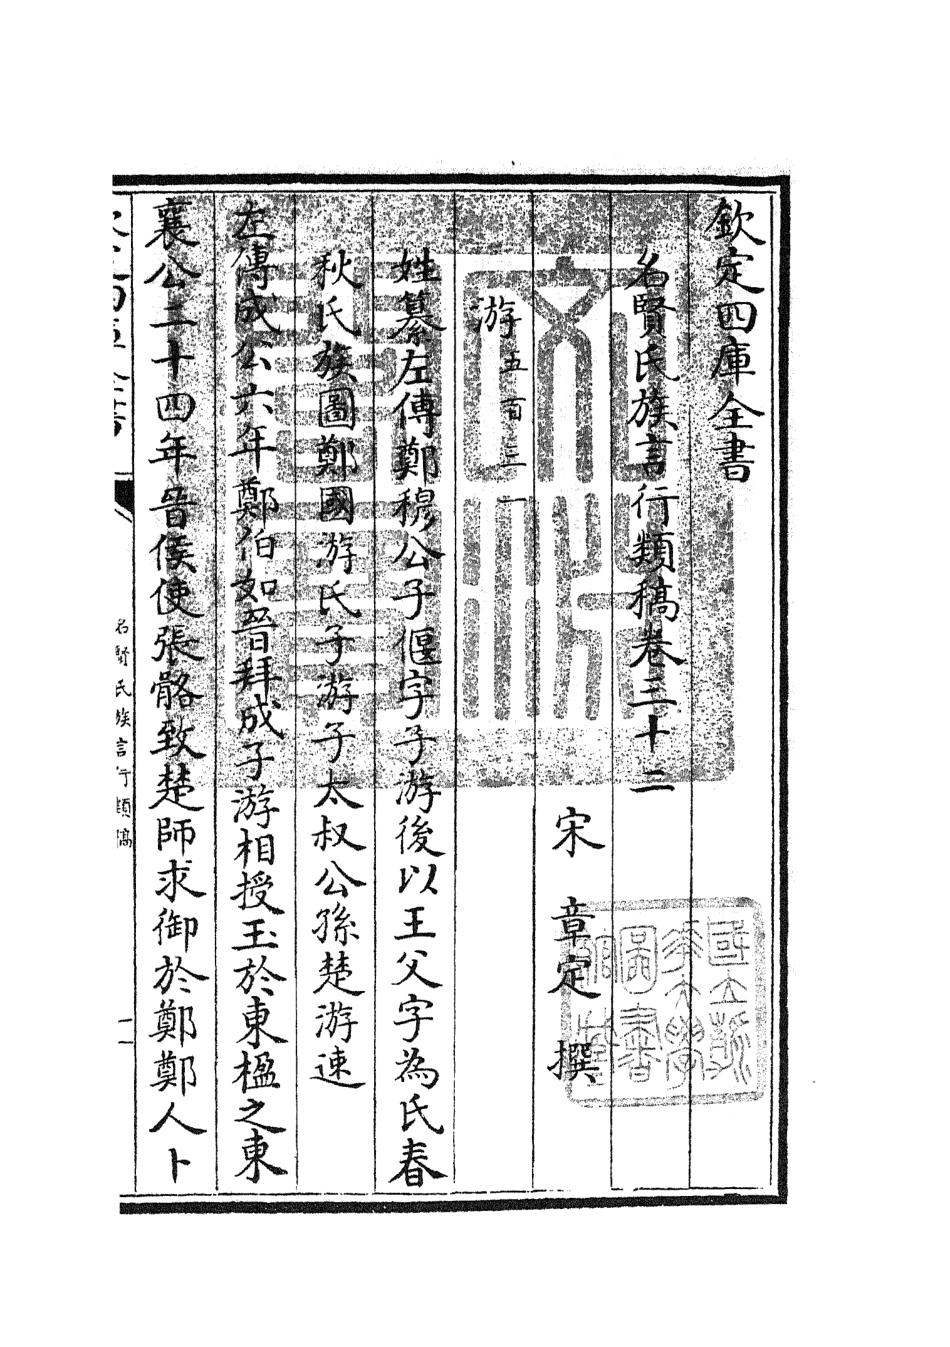 欽定四庫全書
名賢氏族言行類稿卷三十二
宋 章定 撰
游 五百三一
姓纂左傳鄭穆公子偃字子游後以王父字為氏春
秋氏族圖鄭國游氏子游子太叔公孫楚游速
左傳成公六年鄭伯如晉拜成子游相授玉於東楹之東
襄公二十四年晉侯使張骼致楚師求御於鄭鄭人卜
名賢氏族言行類稿
一